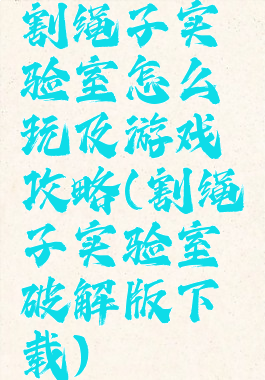 割绳子实
验室怎么
玩及游戏
攻略(割绳
子实验室
破解版下
载)